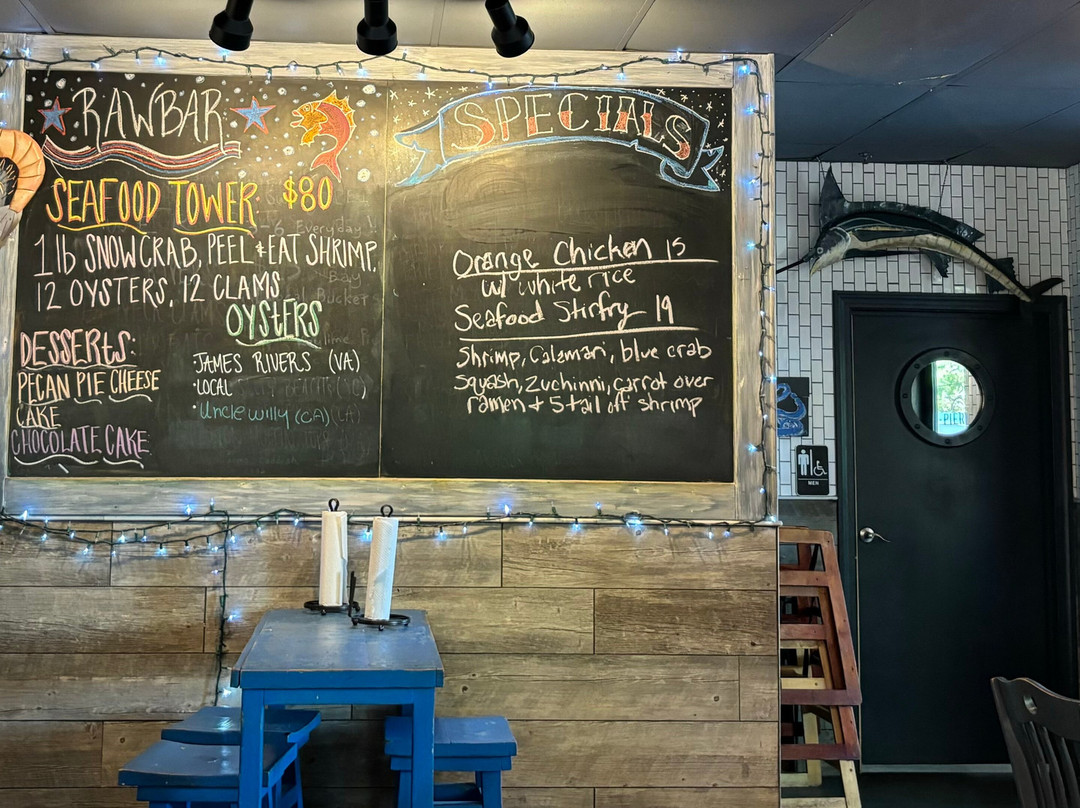 RAWBAR
SEAFOOD TOWER: $80
1 lb SNOWCRAB, PEEL + EAT SHRIMP,
12 OYSTERS, 12 CLAMS
OYSTERS
JAMES RIVERS (VA)
• LOCAL
• Uncle Willy (CA)
DESSERTS:
PECAN PIE CHEESE
CAKE
CHOCOLATE CAKE
SPECIALS
Orange Chicken 15
w/ white rice
Seafood Stirfry 19
Shrimp, Calamari, blue crab
squash, zuchinni, carrot over
ramen + 5 tail off shrimp
MEN
PIER